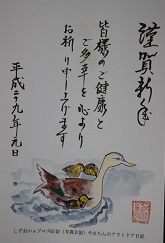 謹賀新年
皆様のご健康と
ご多幸を心より
お祈り申し上げます
平成二十九年元旦
しずおか@ブログ出記(写真日記)やまちんのアウトドア日記